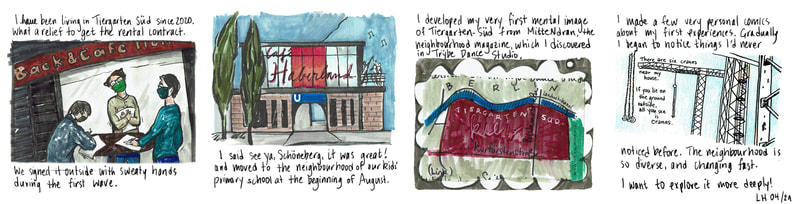 I have been living in Tiergarten Süd since 2020.
What a relief to get the rental contract.
Back & Café
We signed it outside with sweaty hands
during the first wave.
Café
Haberland
U
I said See ya, Schöneberg, it was great!
and moved to the neighbourhood of our kids'
primary school at the beginning of August.
I developed my very first mental image
of Tiergarten-Süd from MitteNdran, the
neighbourhood magazine, which I discovered
in Tribe Dance Studio.
BERLIN
TIERGARTEN SÜD
Kurfürstenstraße
I made a few very personal comics
about my first experiences. Gradually
I began to notice things I'd never
There are six cranes
near my
house.
If you lie on
the ground
outside,
all you see
is
cranes.
noticed before. The neighbourhood is
so diverse, and changing fast.
I want to explore it more deeply!
LH 04/21